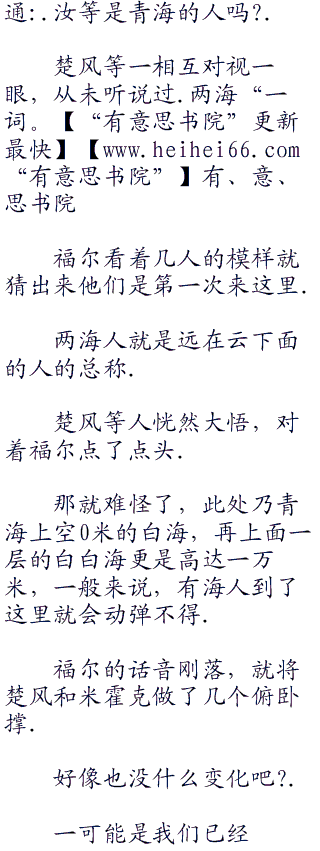 通:.汝等是青海的人吗?.
楚风等一相互对视一
眼，从未听说过.两海“一
词。【“有意思书院”更新
最快】【www.heihei66.com
“有意思书院”】有、意、
思书院
福尔看着几人的模样就
猜出来他们是第一次来这里.
两海人就是远在云下面
的人的总称.
楚风等人恍然大悟，对
着福尔点了点头.
那就难怪了，此处乃青
海上空0米的白海，再上面一
层的白白海更是高达一万
米，一般来说，有海人到了
这里就会动弹不得.
福尔的话音刚落，就将
楚风和米霍克做了几个俯卧
撑.
好像也没什么变化吧?.
一可能是我们已经